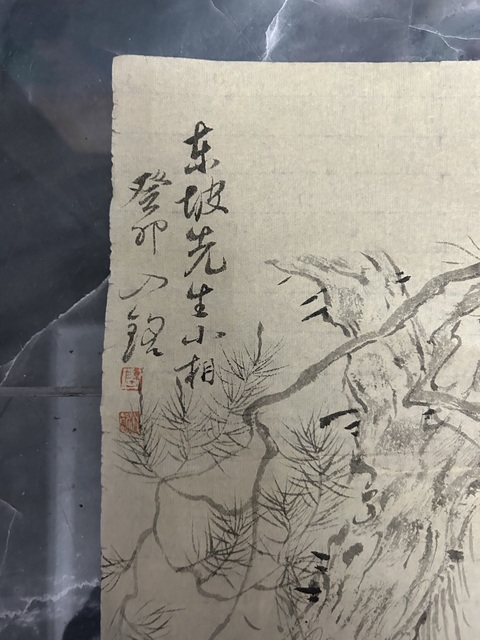 东坡先生小相
癸卯
铭